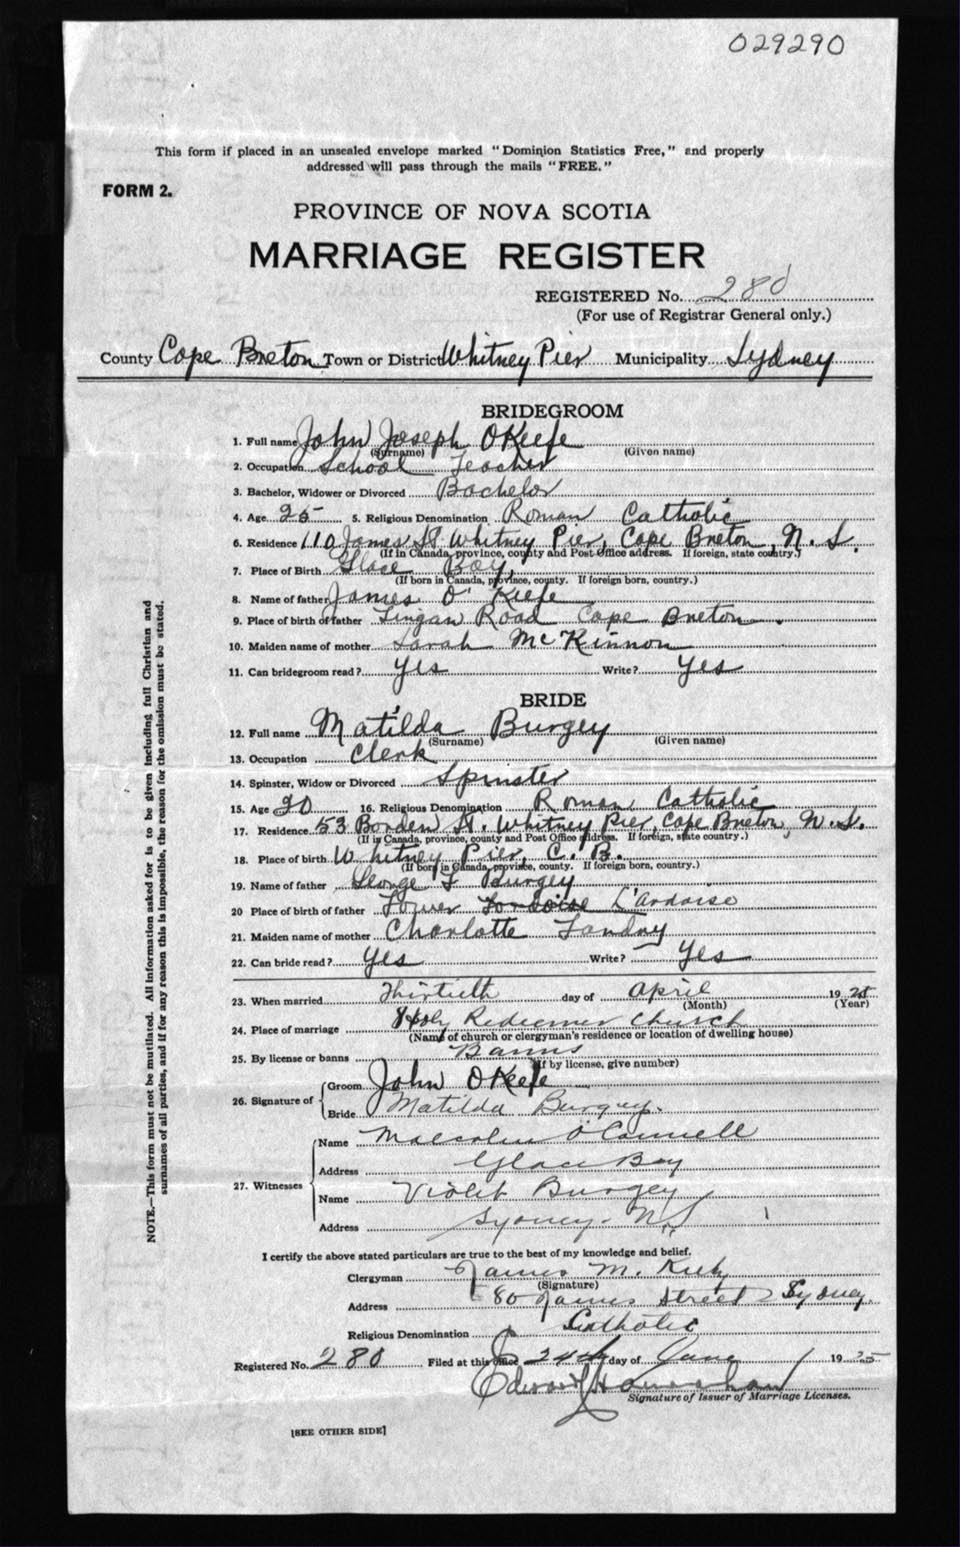 029290
This form if placed in an unsealed envelope marked "Dominion Statistics Free," and properly
addressed will pass through the mails "FREE."
FORM 2.
PROVINCE OF NOVA SCOTIA
MARRIAGE REGISTER
REGISTERED No. 280
(For use of Registrar General only.)
County Cape Breton Town or District Whitney Pier Municipality Sydney
BRIDEGROOM
1. Full name John Joseph OKeefe
(Surname) (Given name)
2. Occupation School Teacher
3. Bachelor, Widower or Divorced Bachelor
4. Age 25 5. Religious Denomination Roman Catholic
6. Residence 110 James St Whitney Pier, Cape Breton, N. S.
(If in Canada, province, county and Post Office address. If foreign, state country.)
7. Place of Birth Glace Bay,
(If born in Canada, province, county. If foreign born, country.)
8. Name of father James O'Keefe
9. Place of birth of father Lingan Road Cape Breton.
10. Maiden name of mother Sarah McKinnon
11. Can bridegroom read? Yes Write? Yes
BRIDE
12. Full name Matilda Burgey
(Surname) (Given name)
13. Occupation Clerk
14. Spinster, Widow or Divorced Spinster
15. Age 20 16. Religious Denomination Roman Catholic
17. Residence 53 Borden St. Whitney Pier, Cape Breton, N. S.
(If in Canada, province, county and Post Office address. If foreign, state country.)
18. Place of birth Whitney Pier, C. B.
(If born in Canada, province, county. If foreign born, country.)
19. Name of father George F Burgey
20 Place of birth of father Lower L'Ardoise
21. Maiden name of mother Charlotte Landry
22. Can bride read? Yes Write? Yes
23. When married Thirtieth day of April 1925
(Month) (Year)
24. Place of marriage Holy Redeemer Church
(Name of church or clergyman's residence or location of dwelling house)
25. By license or banns Banns
(If by license, give number)
26. Signature of Groom John OKeefe
Bride Matilda Burgey.
27. Witnesses Name Malcolm O'Connell
Address Glace Bay
Name Violet Burgey
Address Sydney. N.S
I certify the above stated particulars are true to the best of my knowledge and belief.
Clergyman James M. Kiely
(Signature)
Address 80 James Street Sydney
Religious Denomination Catholic
Registered No. 280 Filed at this office 24th day of June 1925
Edward
Signature of Issuer of Marriage Licenses.
[SEE OTHER SIDE]
NOTE.—This form must not be mutilated. All information asked for is to be given including full Christian and
surnames of all parties, and if for any reason this is impossible, the reason for the omission must be stated.